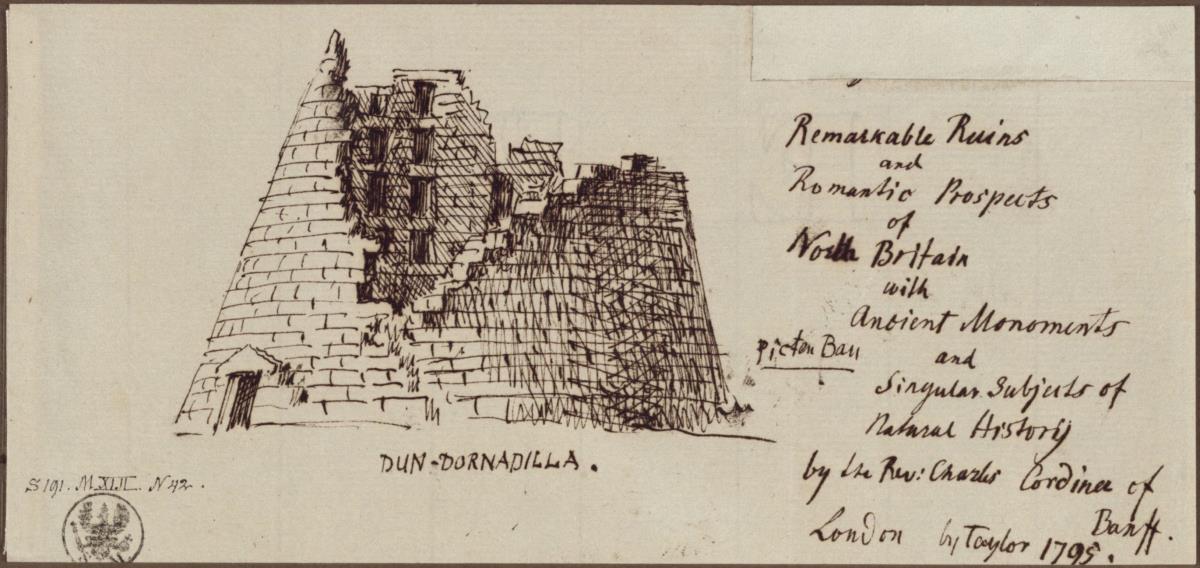 Remarkable Ruins
and
Romantic Prospects
of
North Britain
with
Ancient Monoments
and
Singular Subjects of
Natural History
by the Rev: Charles Cordiner of
Banff.
London by Taylor 1795.
Picton Bau
DUN-DORNADILLA.
S 191. M.XIII. N 42.